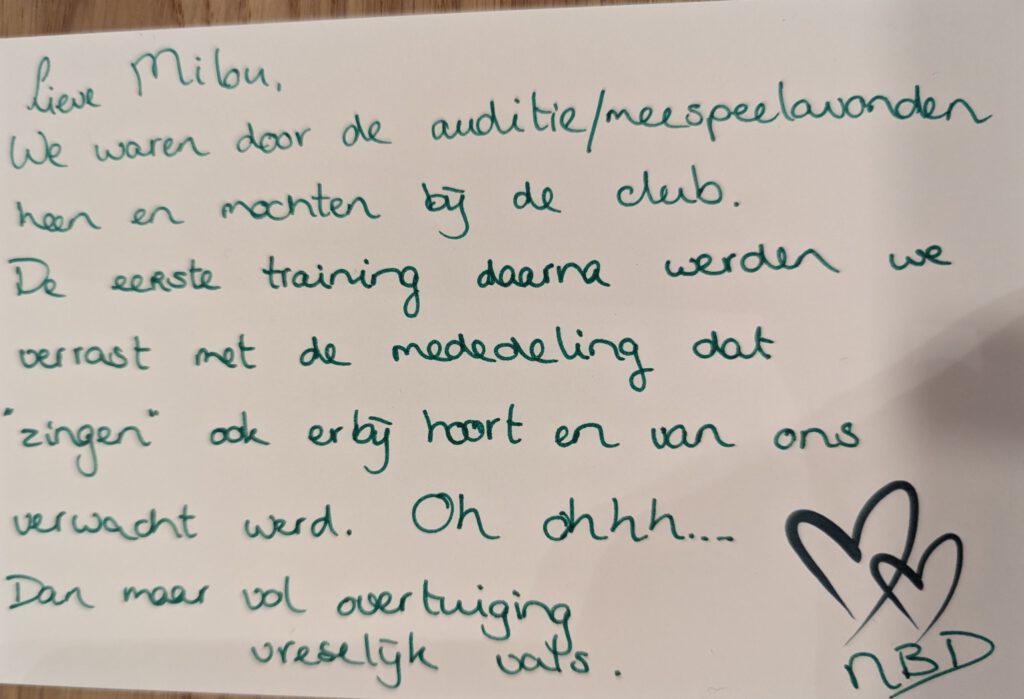 Lieve Milou,
We waren door de auditie/meespeelavonden
heen en mochten bij de club.
De eerste training daarna werden we
verrast met de mededeling dat
"zingen" ook erbij hoort en van ons
verwacht werd. Oh ohhh....
Dan maar vol overtuiging
vreselijk vals.
NBD